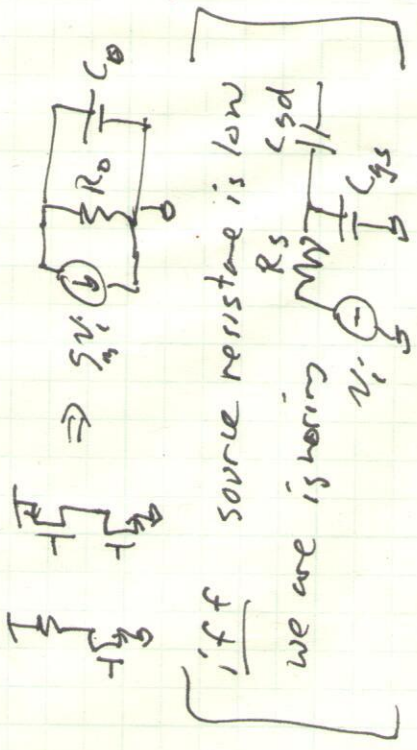 ⇒ gmVi R0 C0
iff source resistance is low
we are ignoring Vi Rs Cgs Cgd